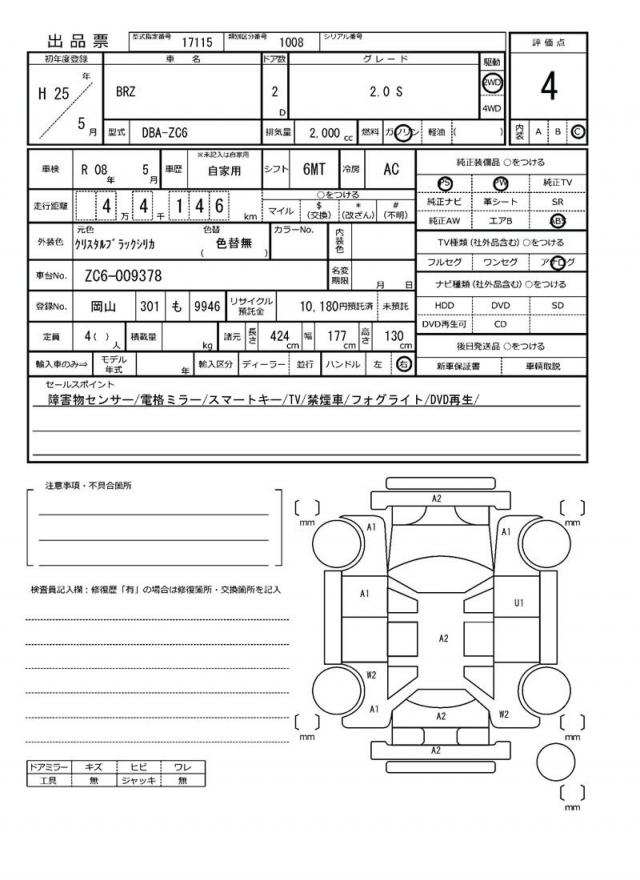 出品票 型式指定番号 17115 類別区分番号 1008 シリアル番号
初年度登録 車名 ドア数 グレード 駆動 評価点
H 25 年 5 月 BRZ 2 D 2.0 S 2WD 4WD 4
型式 DBA-ZC6 排気量 2,000 cc 燃料 ガソリン 軽油 ( ) 内装 A B C
車検 R 08 年 5 月 車歴 ※未記入は自家用 自家用 シフト 6MT 冷房 AC
純正装備品 ○をつける
PS PW 純正TV
純正ナビ 革シート SR
純正AW エアB ABS
走行距離 4 万 4 千 1 4 6 km ○をつける マイル $ (交換) * (改ざん) # (不明)
TV種類 (社外品含む) ○をつける
フルセグ ワンセグ アナログ
外装色 元色 クリスタルブラックシリカ 色替 ( 色替無 ) カラーNo. 内装色
車台No. ZC6-009378 名変期限 月 日
ナビ種類 (社外品含む) ○をつける
HDD DVD SD
DVD再生可 CD
登録No. 岡山 301 も 9946 リサイクル預託金 10,180円預託済 未預託
定員 4( ) 人 積載量 kg 諸元 長さ 424 cm 幅 177 cm 高さ 130 cm
後日発送品 ○をつける
新車保証書 車輌取説
輸入車のみ⇒ モデル年式 年 輸入区分 ディーラー 並行 ハンドル 左 右
セールスポイント
障害物センサー/電格ミラー/スマートキー/TV/禁煙車/フォグライト/DVD再生/
注意事項・不具合箇所
検査員記入欄：修復歴「有」の場合は修復箇所・交換箇所を記入
A2
[ ] mm [ ] mm
A1 A1
A1 U1
A2
W2
A1 A2 W2
[ ] mm [ ] mm
A2
[ ] mm
ドアミラー キズ ヒビ ワレ
工具 無 ジャッキ 無